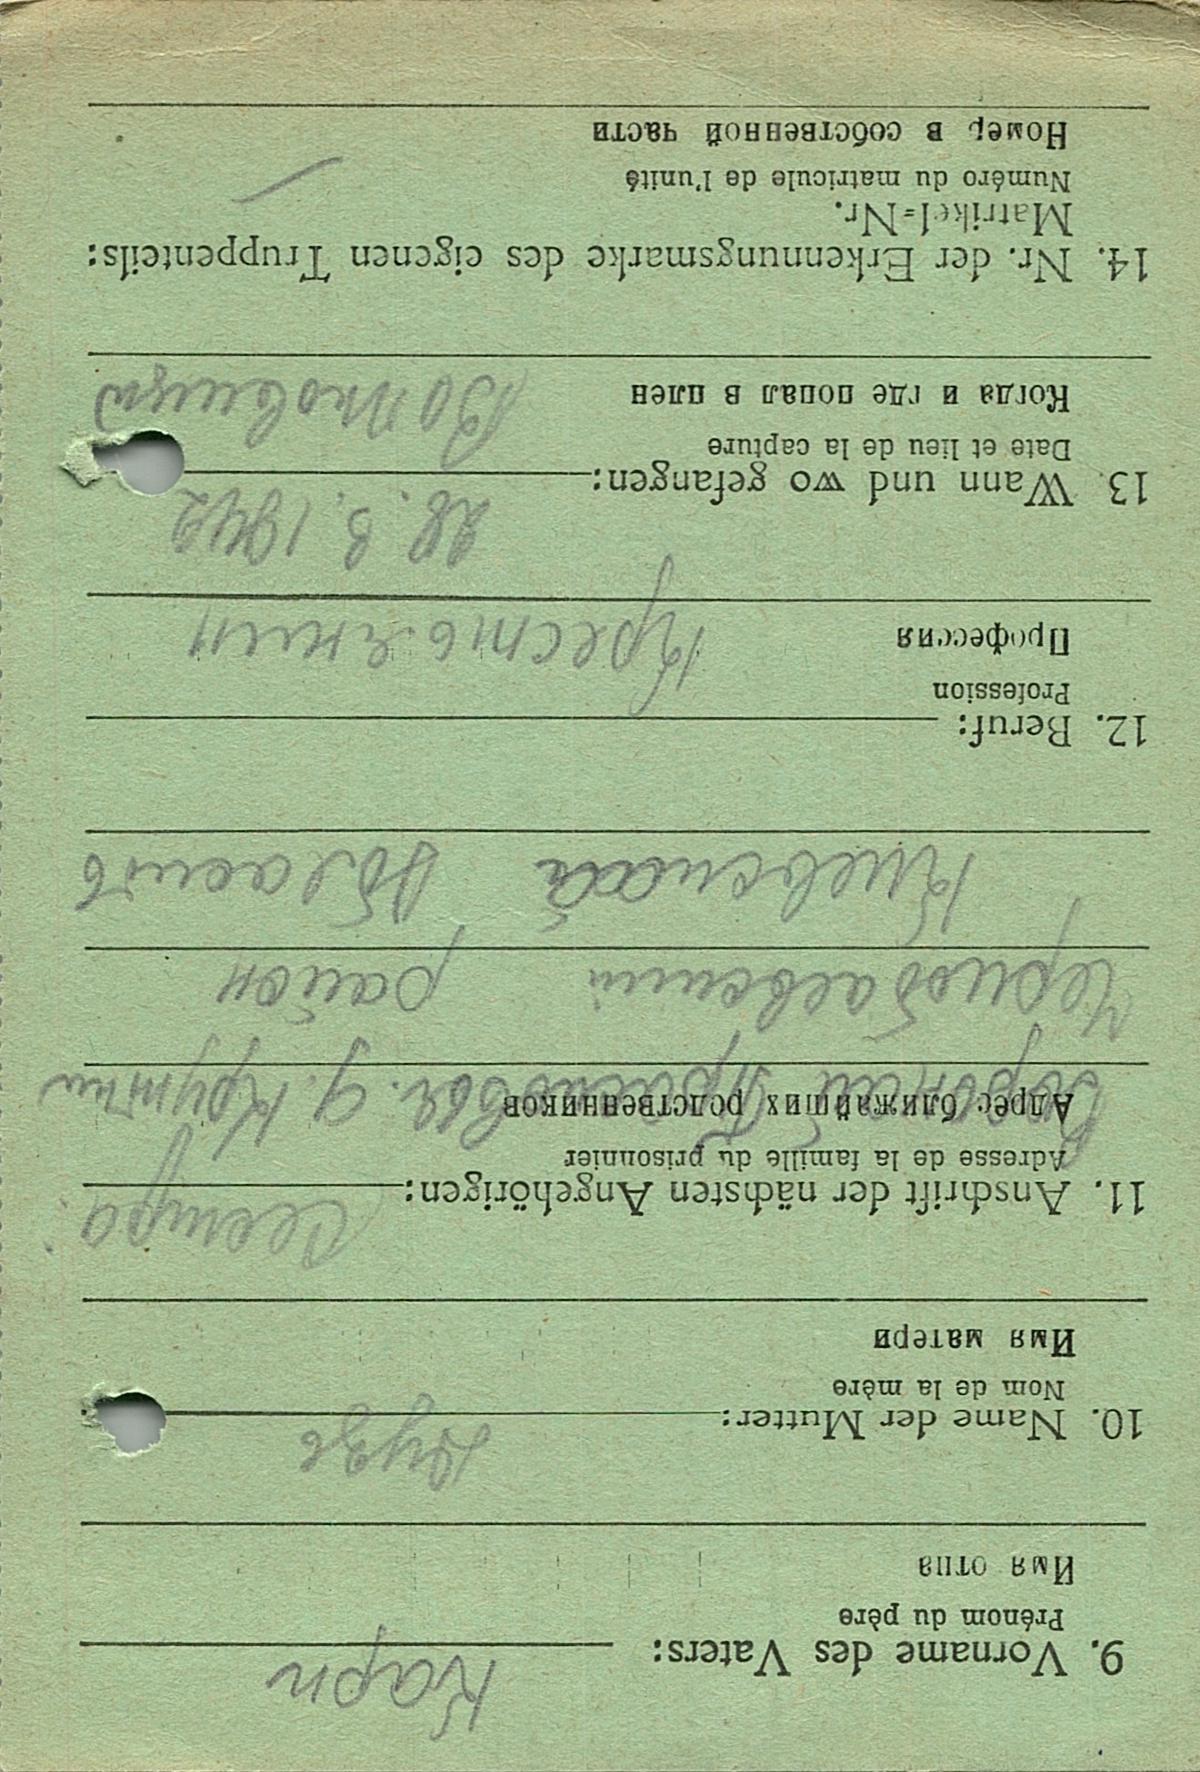 9. Vorname des Vaters: Карп
Prénom du père
Имя отца
10. Name der Mutter:
Nom de la mère
Имя матери
11. Anschrift der nächsten Angehörigen: Сестра
Adresse de la famille du prisonnier
Адрес ближайших родственников
район
Киевская область
12. Beruf:
Profession
Профессия Крестьянин
13. Wann und wo gefangen: 28. 3. 1942
Date et lieu de la capture
Когда и где попал в плен
14. Nr. der Erkennungsmarke des eigenen Truppenteils:
Matrikel-Nr.
Numéro du matricule de l'unité
Номер в собственной части